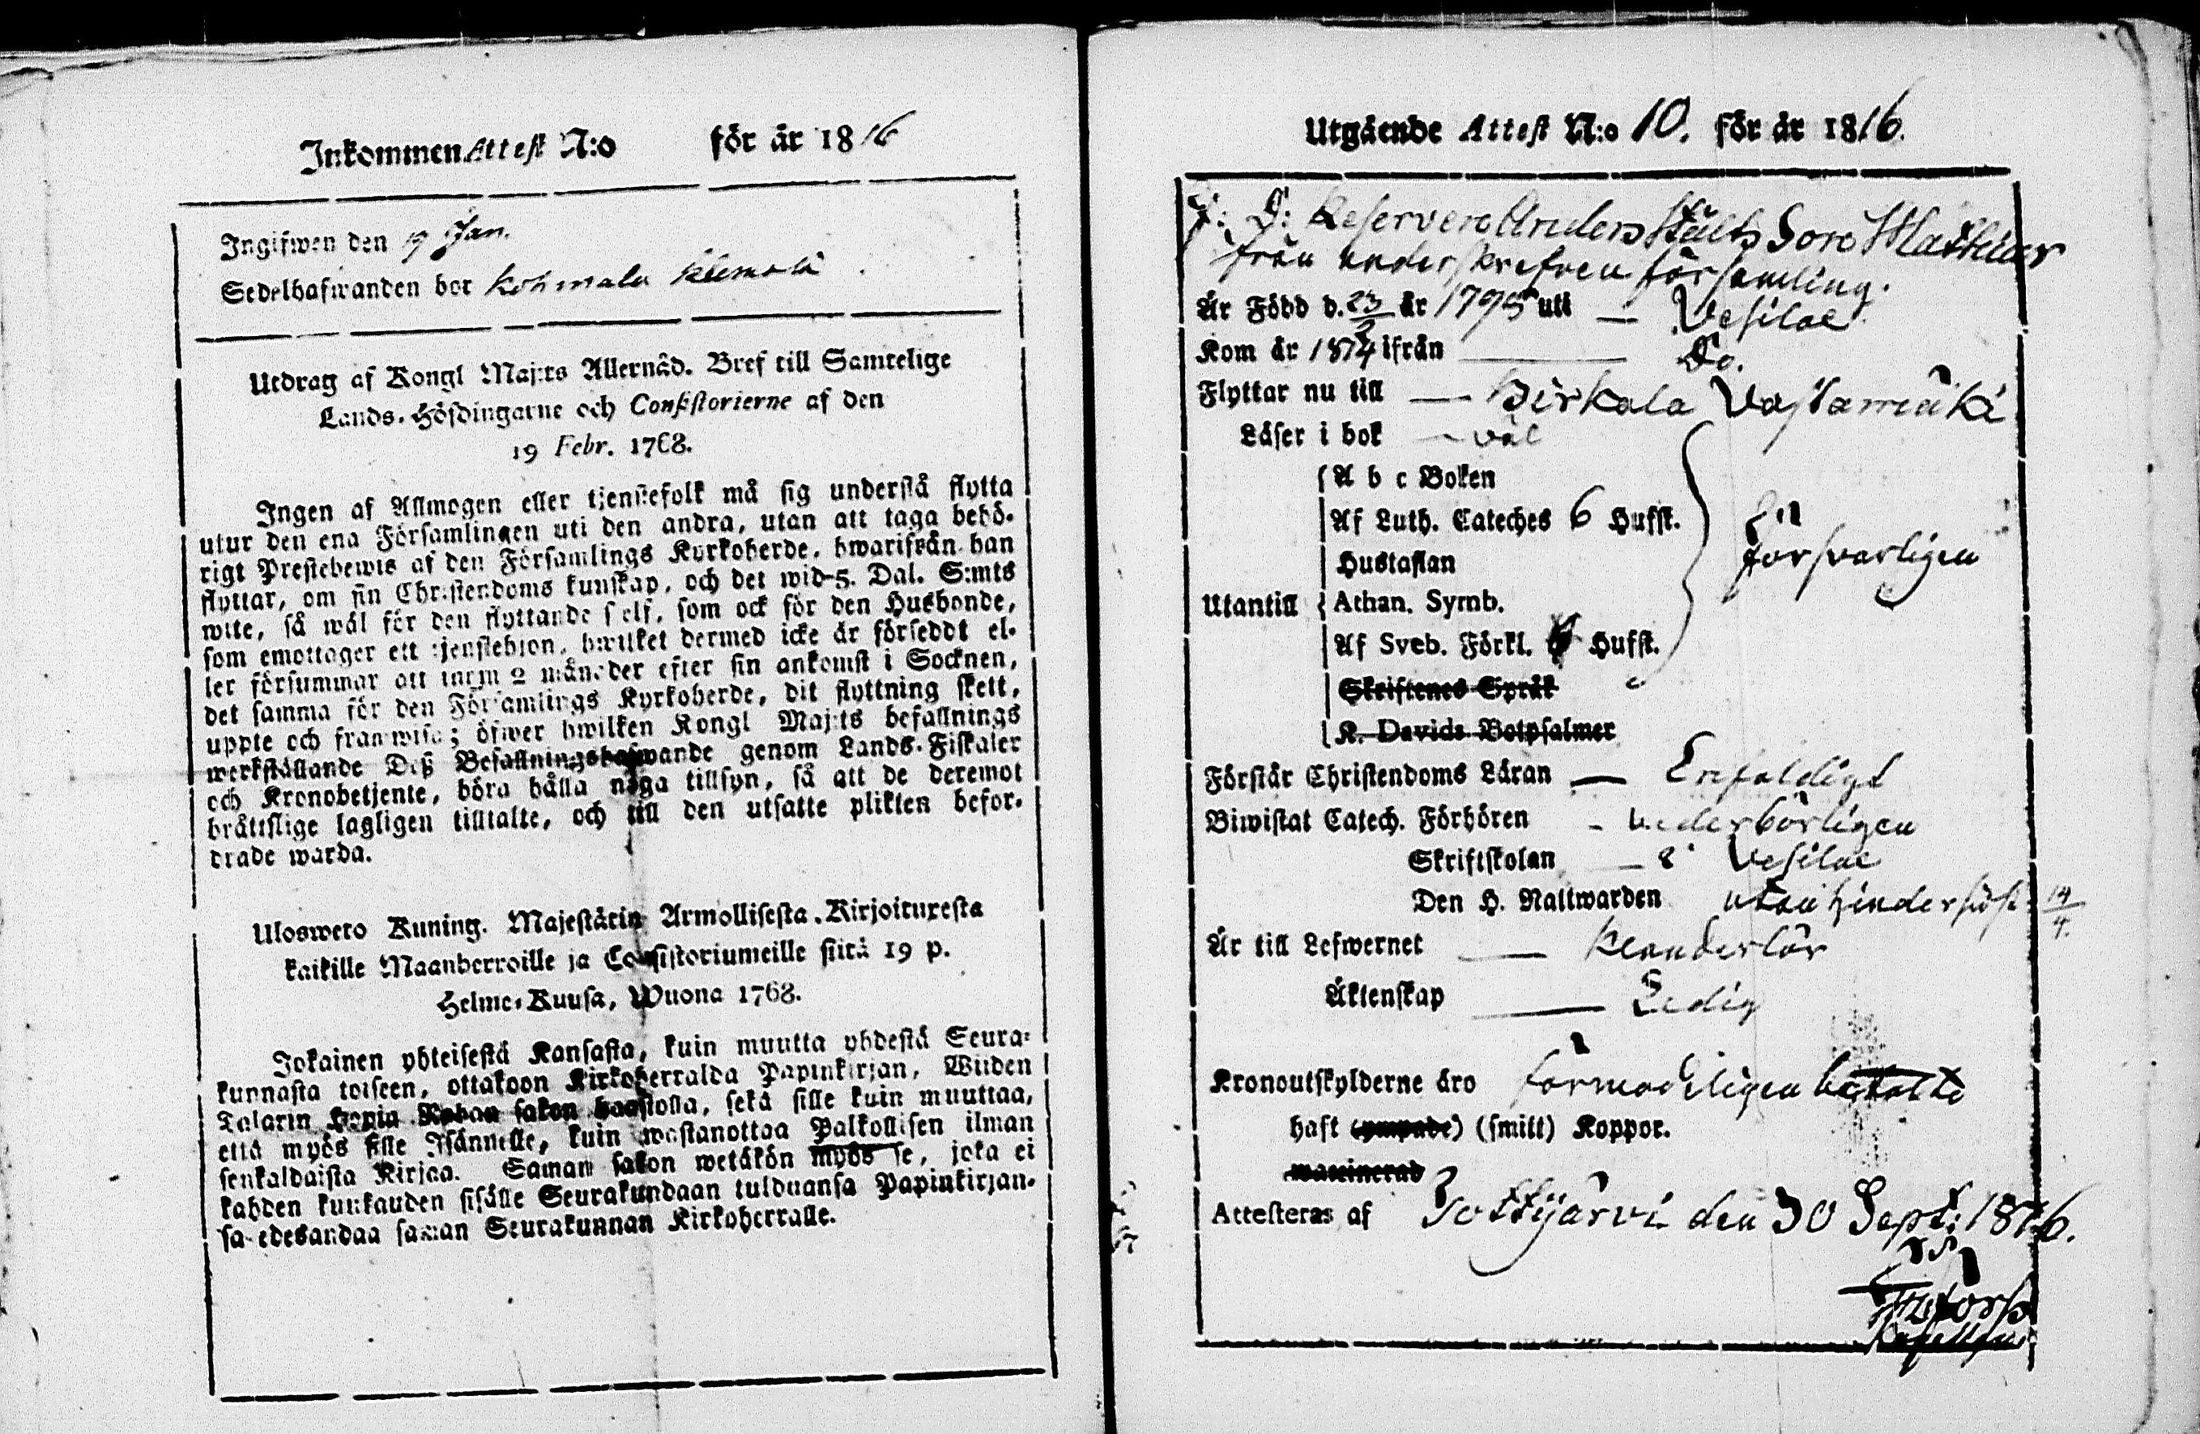 Inkommen Attest N:o för år 1816
Ingifwen den 19 Jan.
Sedelhafwanden bor
Utdrag af Kongl Maj:ts Allernåd. Bref till Samtelige
Lands-Höfdingarne och Consistorierne af den
19 Febr. 1768.
Ingen af Allmogen eller tjenstefolk må sig understå flytta
utur den ena Församlingen uti den andra, utan att taga behö-
rigt Prestebewis af den Församlings Kyrkoherde, hwarifrån han
flyttar, om sin Christendoms kunskap, och det wid 5. Dal. S:mts
wite, så wäl för den flyttande self, som ock för den Husbonde,
som emottager ett tjenstehjon, hwilket dermed icke är förseddt el-
ler försummar att inom 2 månader efter sin ankomst i Socknen,
det samma för den Församlings Kyrkoherde, dit flyttning skett,
uppte och framwisa; öfwer hwilken Kongl Maj:ts befallnings
werkställande Deß Befallningshafwande genom Lands-Fiskaler
och Kronobetjente, böra hålla noga tillsyn, så att de deremot
bråttslige lagligen tilltalte, och till den utsatte plikten befor-
drade warda.
Ulosweto Kuning. Majestätin Armollisesta Kirjoituxesta
kaikille Maanherroille ja Consistoriumeille siitä 19 p.
Helme-Kuusa, Wuona 1768.
Jokainen yhteisestä Kansasta, kuin muutta yhdestä Seura-
kunnasta toiseen, ottakoon Kirkoherralda Papinkirjan, Wiiden
Talarin Hopia Rahan sakon haastolla, sekä sille kuin muuttaa,
että myös sille Isännelle, kuin wastanottaa Palkollisen ilman
senkaldaista Kirjaa. Saman sakon wetäkön myös se, joka ei
kahden kuukauden sisälle Seurakundaan tulduansa Papinkirjan-
sa edesandaa saman Seurakunnan Kirkoherralle.
Utgående Attest N:o 10. för år 1816.
Reserven Anders Son Mathias
från underskrefven församling.
Är Född d. 23 år 1795 uti — Vesilax
Kom år 1814 ifrån — Do.
Flyttar nu till — Birkala Vastamäki
Läser i bok — väl
A b c Boken
Af Luth. Cateches 6 Hufst.
Hustaflan
försvarligen
Utantill Athan. Symb.
Af Sveb. Förkl. 6 Hufst.
Skriftenes Språk
K. Davids Botpsalmer
Förstår Christendoms Läran — Enfaldigt
Biwistat Catech. Förhören - vederbörligen
Skriftskolan — i Vesilax
Den H. Nattwarden utan hinder sist 14/4.
Är till Lefwernet — Klanderlös
Äktenskap — Ledig
Kronoutskylderne äro förmodeligen betalte
haft (ympade) (smitt) Koppor.
waccinerad
Attesteras af Tottijärvi den 30 Sept: 1816.